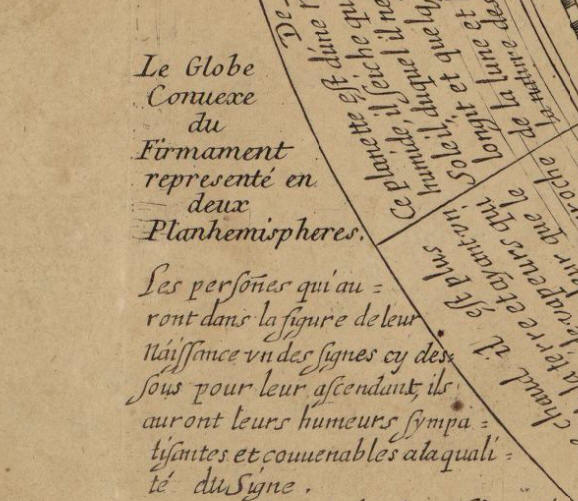 Le Globe
Conuexe
du
Firmament
representé en
deux
Planhemispheres.
Les persoñes qui au =
ront dans la figure de leur
Naissance vn des signes cy des:
sous pour leur ascendant, ils
auront leurs humeurs sympa =
tisantes et couuenables a la quali =
té du Signe .
De-
Ce planette est d'une
humide, il seiche qu
Soleil, duquel il ne
longt et quelq
de la lune et
la nature des
chaud il est plus
la terre et ayant vn
de vapeurs qui
que le
proche